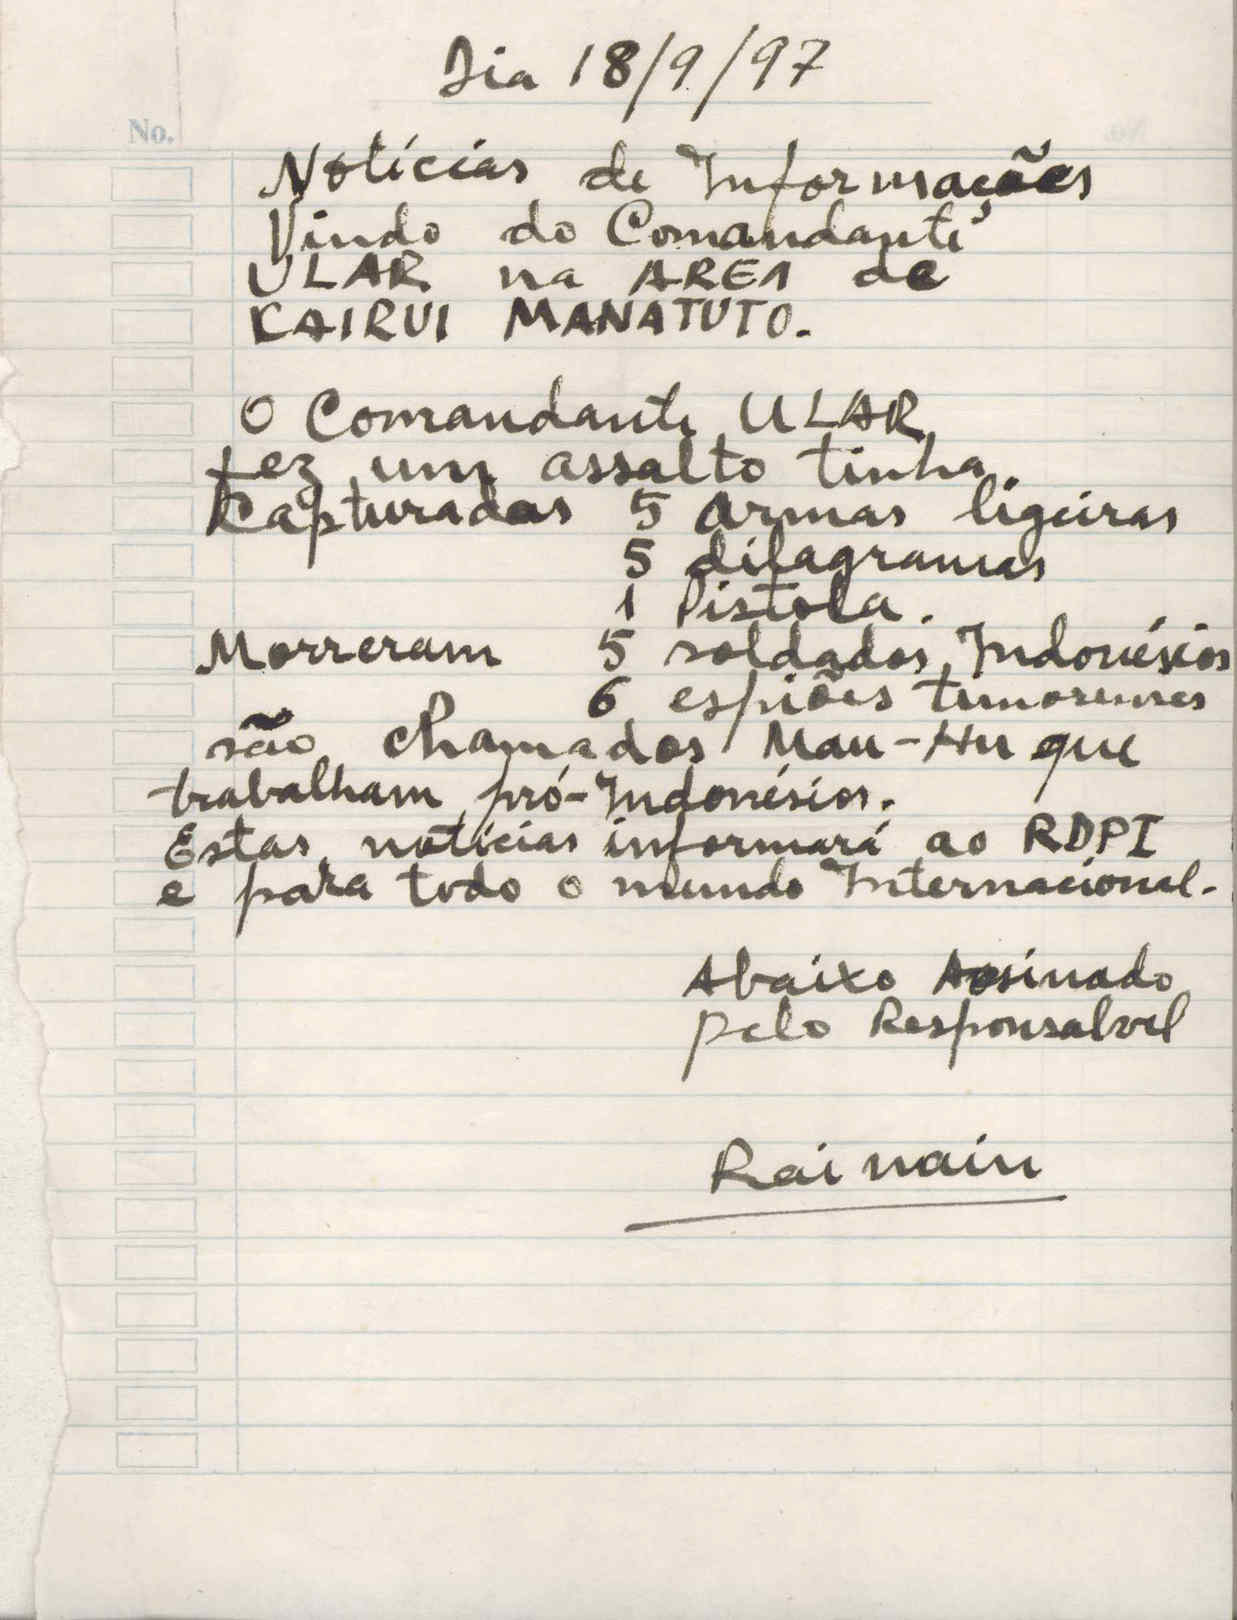 Dia 18/9/97
No.
Notícias de Informações
Vindo do Comandante
ULAR na AREA de
KAIRUI MANATUTO.
O Comandante ULAR
fez um assalto tinha
Kapturadas 5 armas ligeiras
5 dilagramas
1 Pistola.
Morreram 5 soldados Indonésios
6 espiões timorenses
são chamados Mau-Hu que
trabalham pró-Indonésios.
Estas notícias informará ao RDPI
e para todo o mundo Internacional.
Abaixo Assinado
pelo Responsalvel
Rai nain